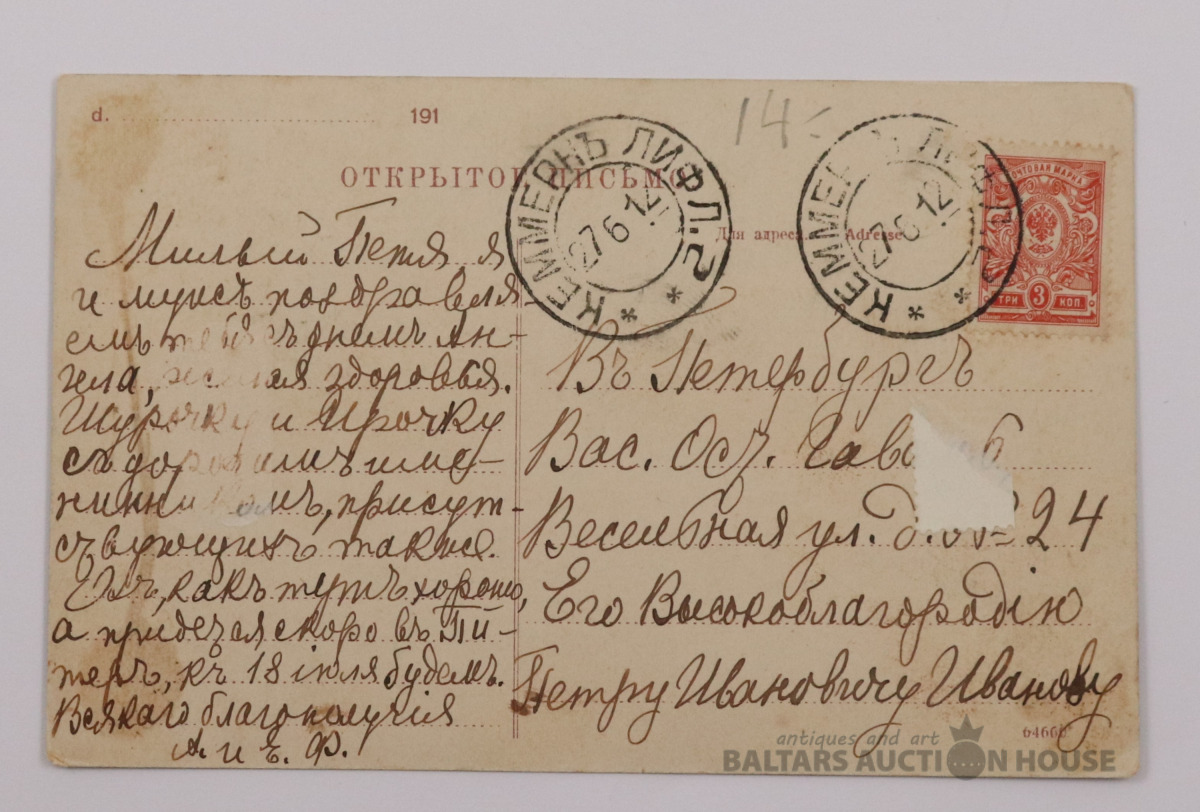 d. 191
ОТКРЫТОЕ ПИСЬМО
14-
КЕММЕРНЪ ЛИФЛ. 2
27 6 12
КЕММЕР Ъ ЛИФЛ. 2
27 6 12
ПОЧТОВАЯ МАРКА
ТРИ 3 КОП.
Для адреса. Adresse
Милый Петя я
и мужъ поздравля-
емъ тебя съ днемъ Ан-
гела, желая здоровья.
Шурочку и Ирочку
съ дорогимъ име-
нинникомъ, присут-
ствующихъ также.
Эхъ, какъ тутъ хорошо,
а придется скоро въ Пи-
теръ, къ 18 іюля будемъ.
Всякаго благополучія
А. и Ф.
Въ Петербургъ
Вас. Ос. Гав
Весельная ул. д. № 24
Его Высокоблагородію
Петру Ивановичу Иванову
64660
antiques and art
BALTARS AUCTION HOUSE